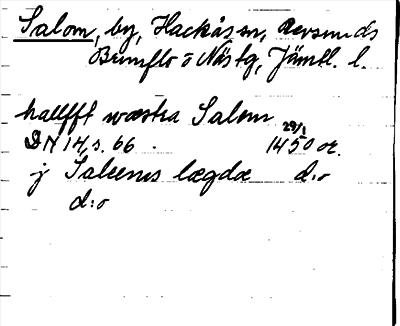 Salom, by, Hackås sn, Revsunds
Brunflo o Näs tg, Jämtl. l.
hallfft wæstra Salom
29/1
DN 14, s. 66. 1450 or.
j Salems lægdæ d:o
d:o